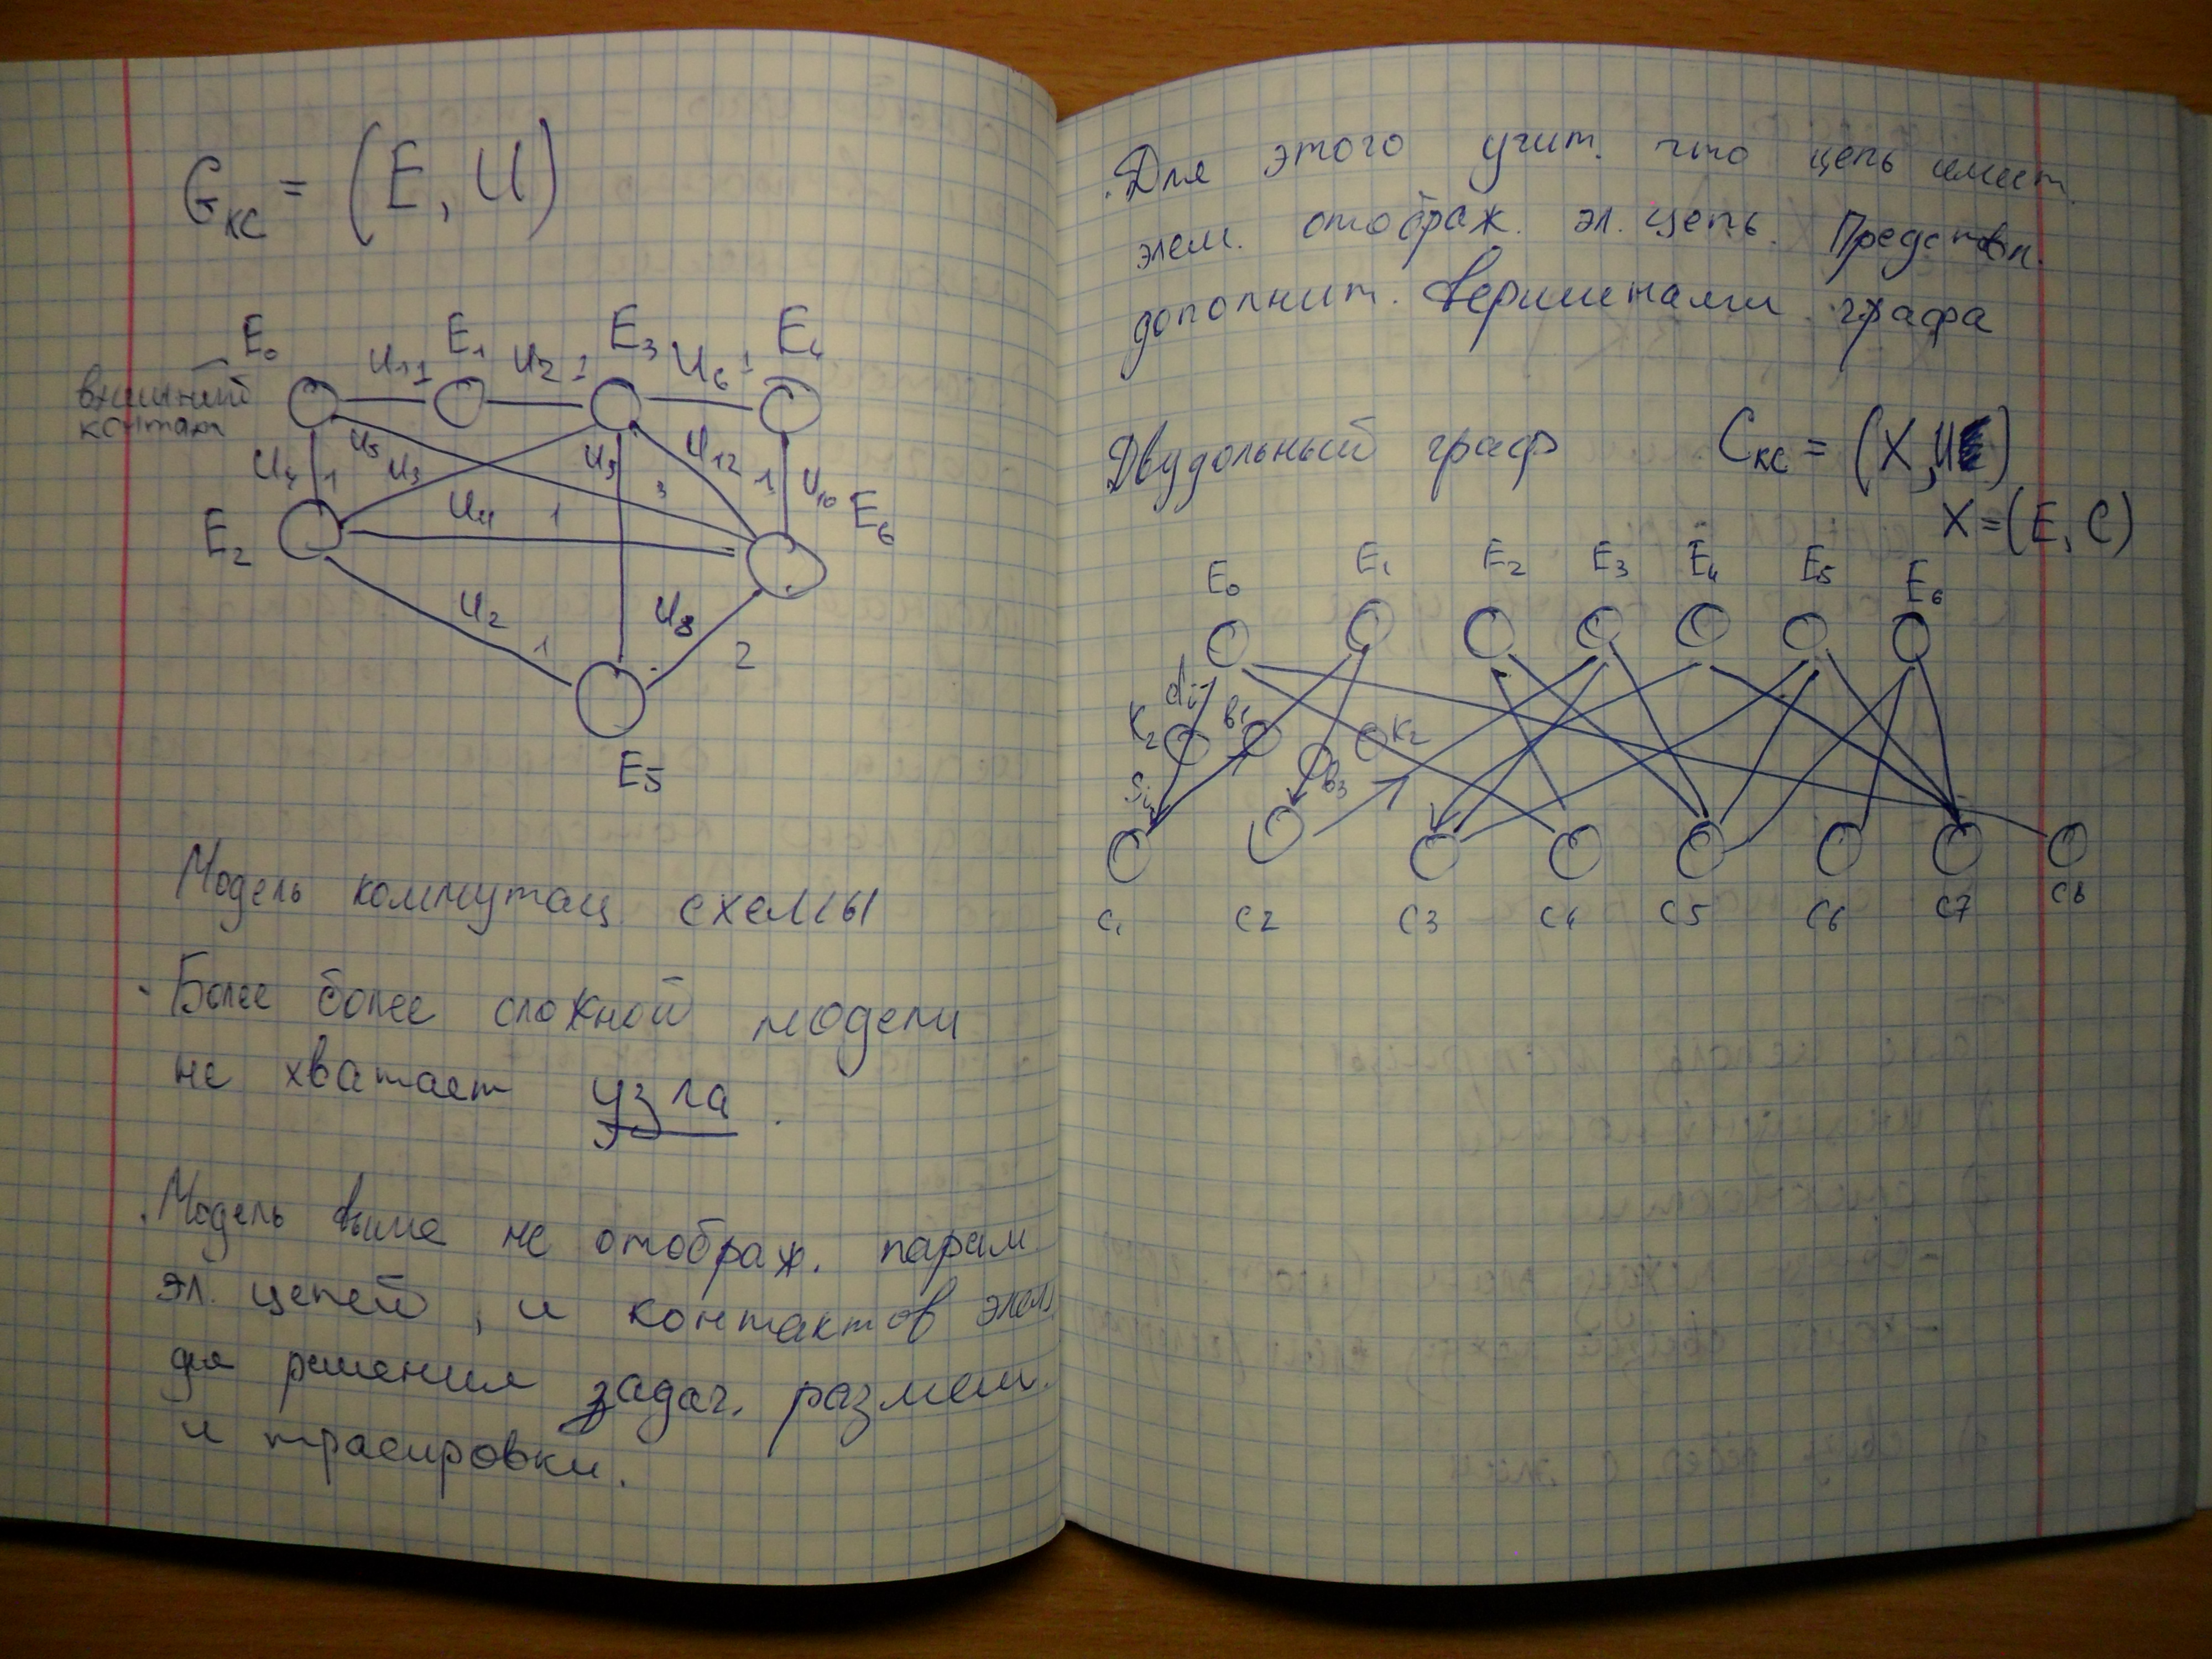 Gкс = (E, U)
E₀ E₁ E₃ E₄
U₁ 1 U₂ 1 U₆ 1
внешний
контакт
U₅ U₃ U₉ U₁₂
U₄ 1 3 1 U₁₀
E₂ U₁₁ 1 E₆
U₂ 1 U₈ 2
E5
Модель коммутац. схемы
Более более сложной модели
не хватает узла.
Модель выше не отображ. парам
эл. цепей, и контактов элем.
для решения задач. размещ.
и трасировки.
Для этого учит. что цепь имеет
элем. отображ. эл. цепь. Представл.
дополнит. вершинами графа
Двудольный граф Cкс = (X, U)
X = (E, C)
E₀ E₁ E₂ E₃ E₄ E₅ E₆
K₂ B₁ K₂
B₃
C₁ C2 C3 C4 C5 C6 C7 C8